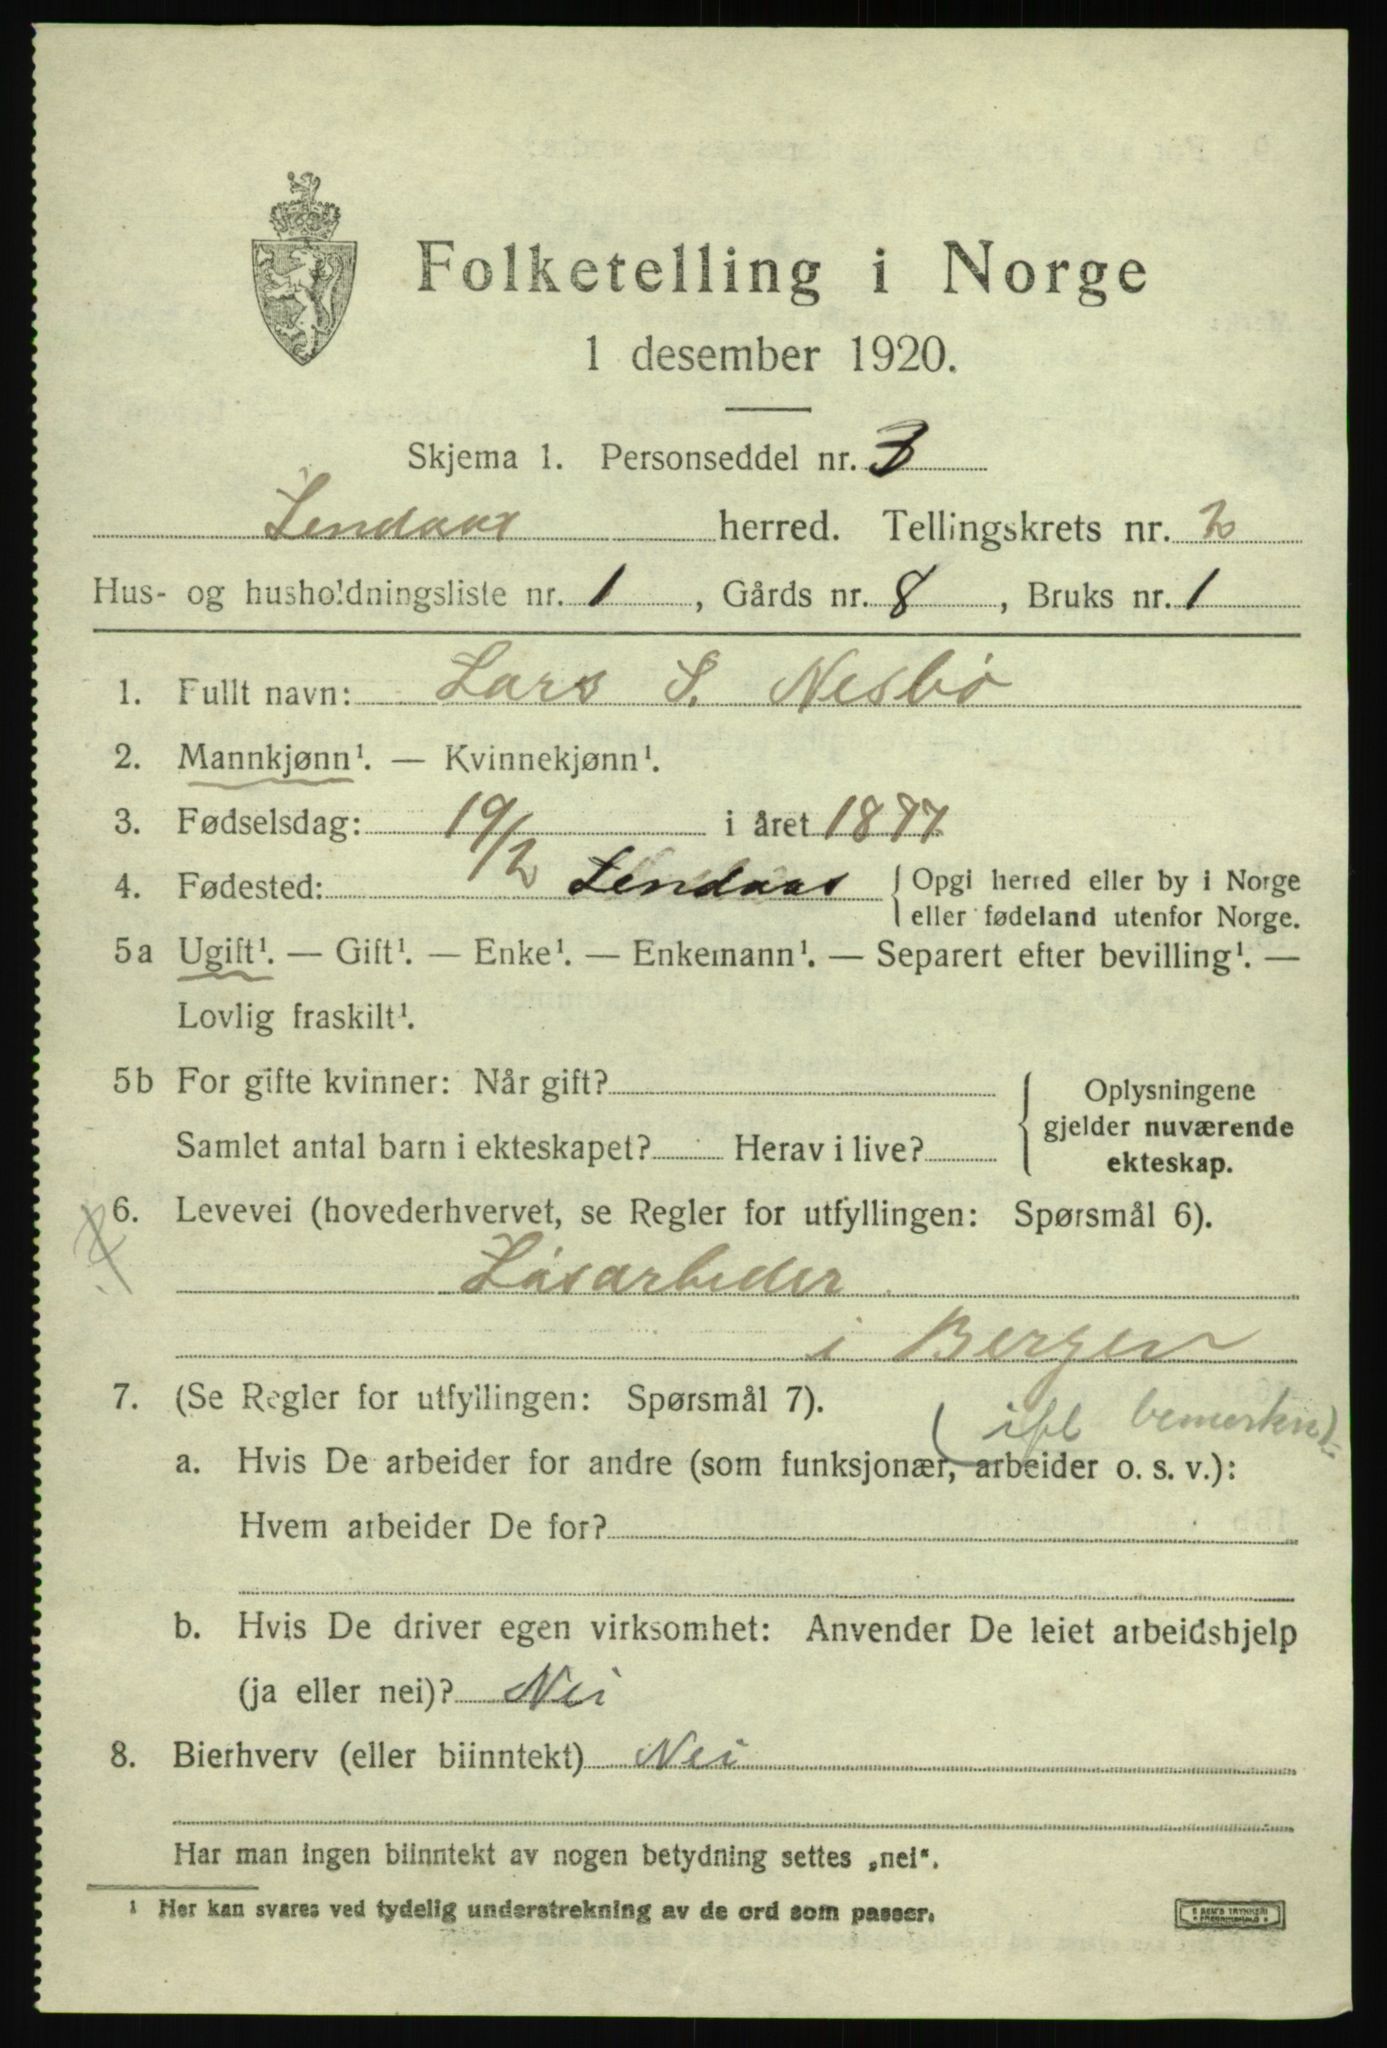 Folketelling i Norge
1 desember 1920.
Skjema 1. Personseddel nr. 3
Lendaas herred. Tellingskrets nr. 2
Hus- og husholdningsliste nr. 1, Gårds nr. 8, Bruks nr. 1
1. Fullt navn: Lars S. Nesbö
2. Mannkjønn¹. — Kvinnekjønn¹.
3. Fødselsdag: 19/2 i året 1897
4. Fødested: Lendaas { Opgi herred eller by i Norge
eller fødeland utenfor Norge.
5a Ugift¹. — Gift¹. — Enke¹. — Enkemann¹. — Separert efter bevilling¹. —
Lovlig fraskilt¹.
5b For gifte kvinner: Når gift? { Oplysningene
gjelder nuværende
Samlet antal barn i ekteskapet? Herav i live?
ekteskap.
6. Levevei (hovederhvervet, se Regler for utfyllingen: Spørsmål 6).
Lösarbeder
i Bergen
7. (Se Regler for utfyllingen: Spørsmål 7).
(ifl bemerkn)
a. Hvis De arbeider for andre (som funksjonær, arbeider o. s. v.):
Hvem arbeider De for?
b. Hvis De driver egen virksomhet: Anvender De leiet arbeidshjelp
(ja eller nei)? Nei
8. Bierhverv (eller biinntekt) Nei
Har man ingen biinntekt av nogen betydning settes „nei“.
¹ Her kan svares ved tydelig understrekning av de ord som passer.